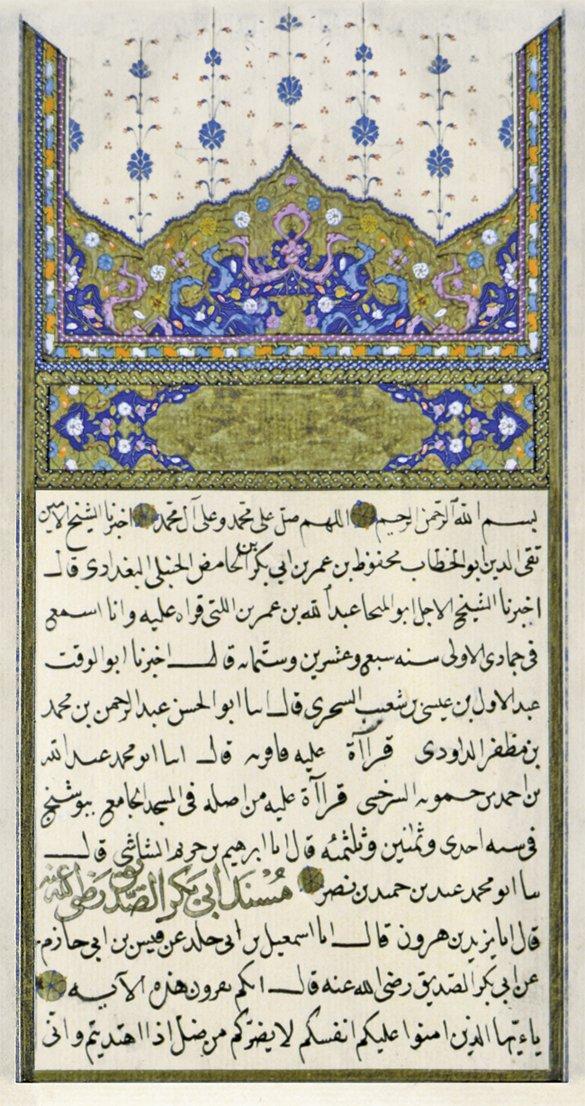 بسم الله الرحمن الرحيم اللهم صل على محمد وعلى آل محمد اخبرنا الشيخ الامين
تقى الدين ابو الخطاب محفوظ بن عمر بن ابي بكر بن الحامض الحنبلى البغدادى قال
اخبرنا الشيخ الاجل ابو المنجا عبد الله بن عمر بن اللتى قراه عليه وانا اسمع
فى جمادى الاولى سنه سبع وعشرين وستمايه قال اخبرنا ابو الوقت
عبد الاول بن عيسى بن شعيب السجزى قال انبا ابو الحسن عبد الرحمن بن محمد
بن مظفر الداودى قرآأة عليه قال انبا ابو محمد عبد الله
بن احمد بن حمويه السرخسى قرآأة عليه من اصله فى المسجد الجامع ببوشنج
فى سنه احدى وثمنين وثلثمئه قال انا ابرهيم بن خريم الشاشى قال
نبا ابو محمد عبد بن حميد بن نصر مسند ابى بكر الصديق رضى الله عنه
قال انا يزيد بن هرون قال انا اسمعيل بن ابى خلد عن قيس بن ابى حازم
عن ابي بكر الصديق رضى الله عنه قال انكم تقرون هذه الآيه
ياءيها الذين امنوا عليكم انفسكم لا يضركم من ضل اذا اهتديتم وانى